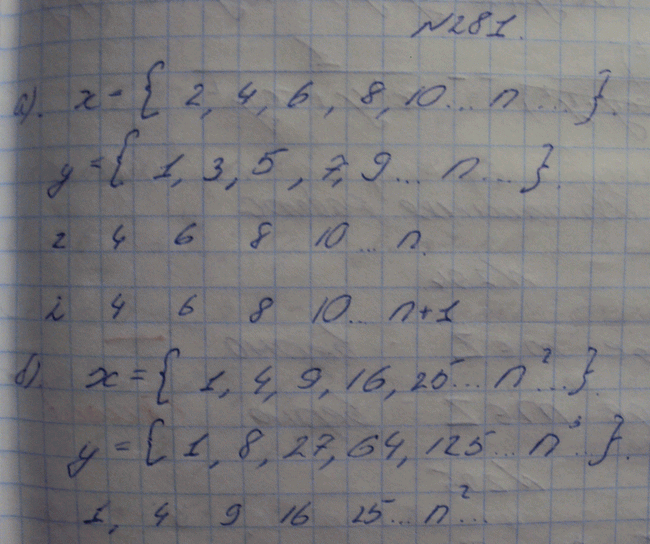 №281.
а). x = { 2, 4, 6, 8, 10... n ... }.
y = { 1, 3, 5, 7, 9... n... }.
2 4 6 8 10... n.
2 4 6 8 10... n+1
б) x = { 1, 4, 9, 16, 25... n²... }.
y = { 1, 8, 27, 64, 125... n³... }.
1, 4 9 16 25... n²...